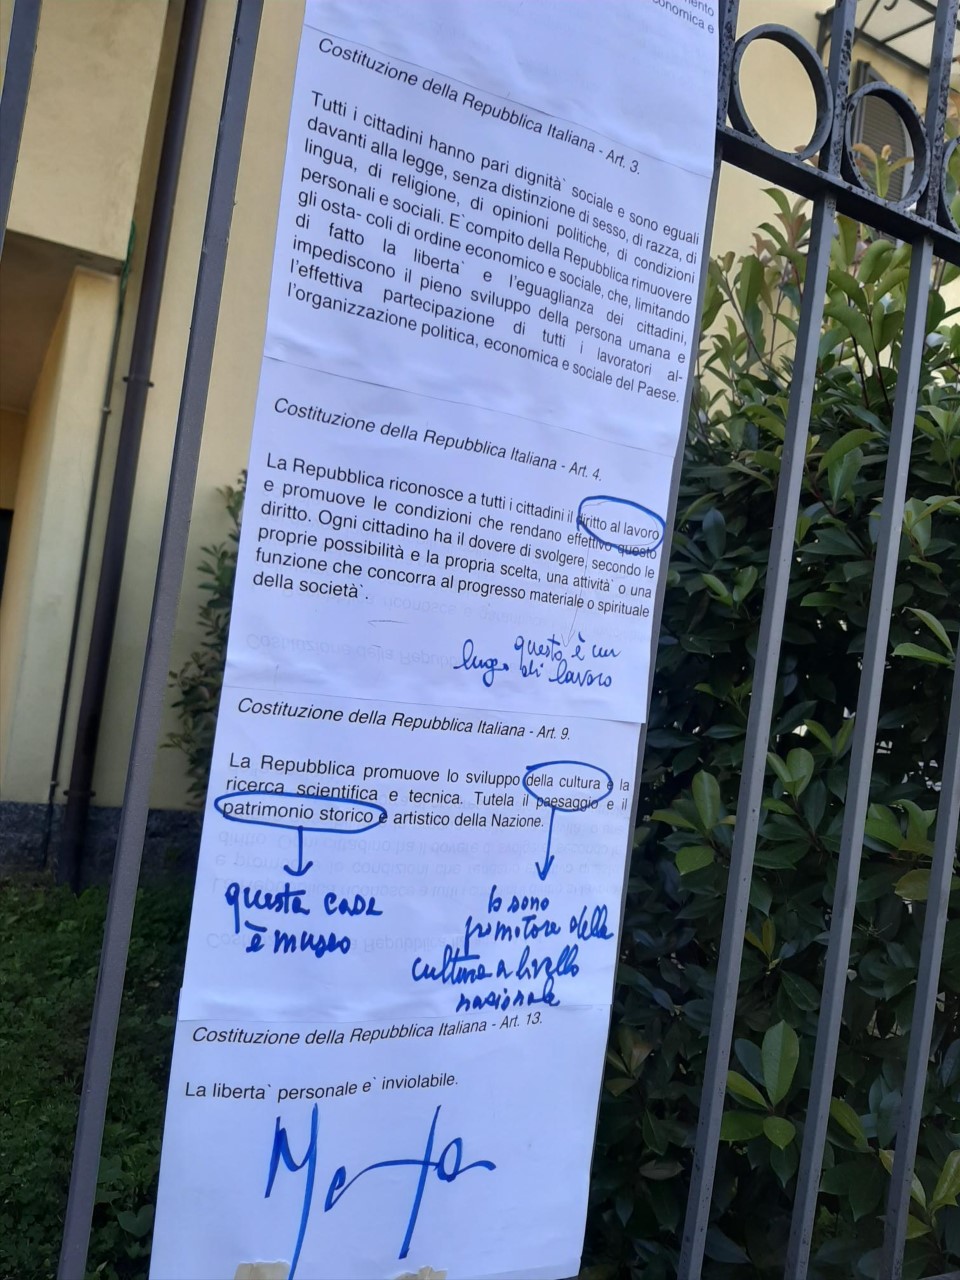 onomica e
Costituzione della Repubblica Italiana - Art. 3.
Tutti i cittadini hanno pari dignità` sociale e sono eguali
davanti alla legge, senza distinzione di sesso, di razza, di
lingua, di religione, di opinioni politiche, di condizioni
personali e sociali. E` compito della Repubblica rimuovere
gli osta- coli di ordine economico e sociale, che, limitando
di fatto la liberta` e l'eguaglianza dei cittadini,
impediscono il pieno sviluppo della persona umana e
l'effettiva partecipazione di tutti i lavoratori al-
l'organizzazione politica, economica e sociale del Paese.
Costituzione della Repubblica Italiana - Art. 4.
La Repubblica riconosce a tutti i cittadini il diritto al lavoro
e promuove le condizioni che rendano effettivo questo
diritto. Ogni cittadino ha il dovere di svolgere, secondo le
proprie possibilità e la propria scelta, una attività` o una
funzione che concorra al progresso materiale o spirituale
della società`.
questo è un
luogo di lavoro
Costituzione della Repubblica Italiana - Art. 9.
La Repubblica promuove lo sviluppo della cultura e la
ricerca scientifica e tecnica. Tutela il paesaggio e il
patrimonio storico e artistico della Nazione.
questa casa
è museo
Io sono
promotore della
cultura a livello
nazionale
Costituzione della Repubblica Italiana - Art. 13.
La liberta` personale e` inviolabile.